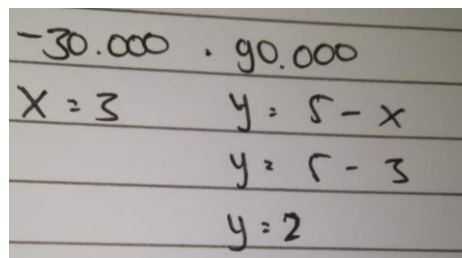 -30.000 . 90.000
x = 3 y = 5 - x
y = 5 - 3
y = 2